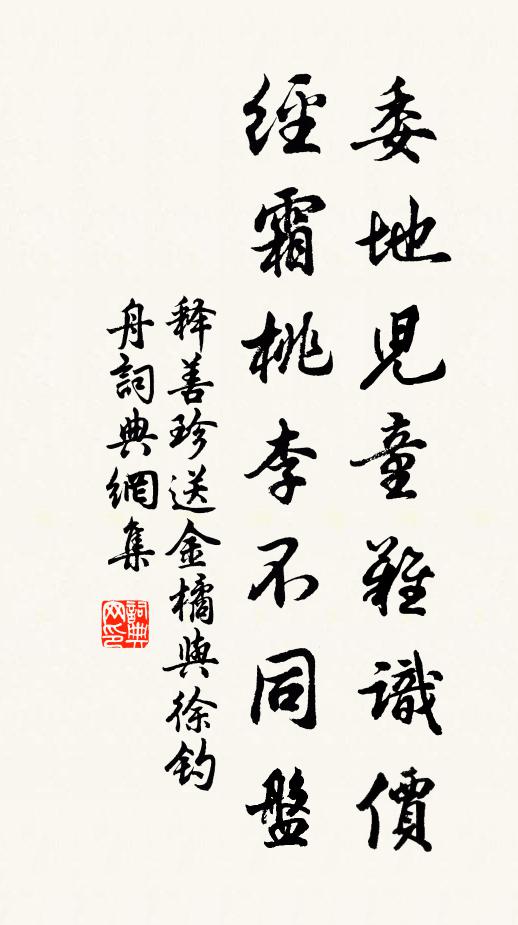 委地児童難識價
經霜桃李不同盤
释善珍送金橘與徐钓
舟詞典網集
詞典网印